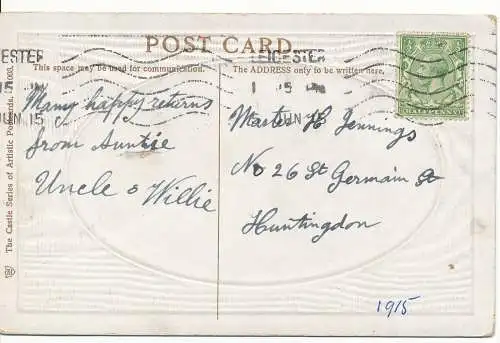 POST CARD.
This space may be used for communication.
The ADDRESS only to be written here.
LEICESTER
JUN 15
HALFPENNY
Many happy returns
from Auntie
Uncle & Willie
Master H Jennings
No 26 St Germain St
Huntingdon
1915
The Castle Series of Artistic Postcards.